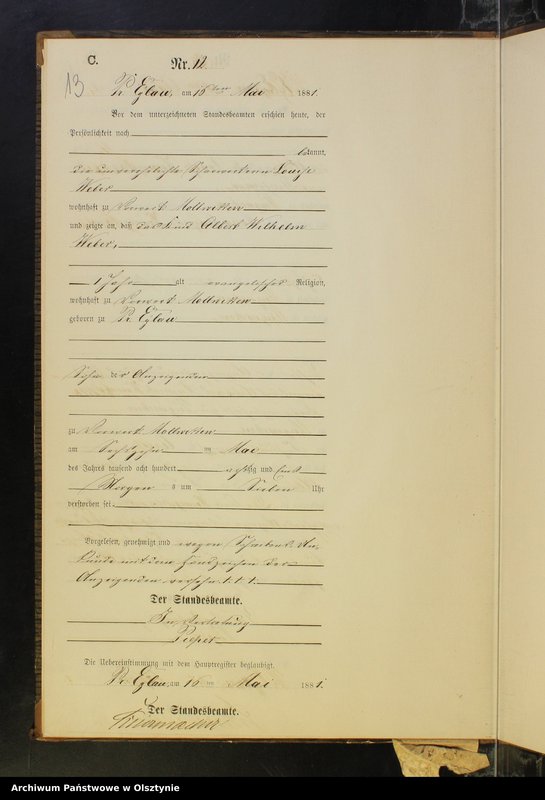 C.
Nr. 12.
13
Pr. Eylau, am 16ten Mai 1881.
Vor dem unterzeichneten Standesbeamten erschien heute, der
Persönlichkeit nach
bekannt,
die unverehelichte Louise
Weber
wohnhaft zu Vorwerk Mollwitten
und zeigte an, daß das Kind Albert Wilhelm
Weber,
1 Jahr alt evangelischer Religion,
wohnhaft zu Vorwerk Mollwitten
geboren zu Pr. Eylau
Sohn der Anzeigenden
zu Vorwerk Mollwitten
am Sechszehn ten Mai
des Jahres tausend acht hundert achtzig und eins
Morgens um Sieben Uhr
verstorben sei.
Vorgelesen, genehmigt und wegen Schreibens Un-
kunde mit dem Handzeichen der
Anzeigenden versehn. † † †
Der Standesbeamte.
In Vertretung
Pieper
Die Uebereinstimmung mit dem Hauptregister beglaubigt.
Pr. Eylau, am 16 ten Mai 1881.
Der Standesbeamte.
Archiwum Państwowe w Olsztynie